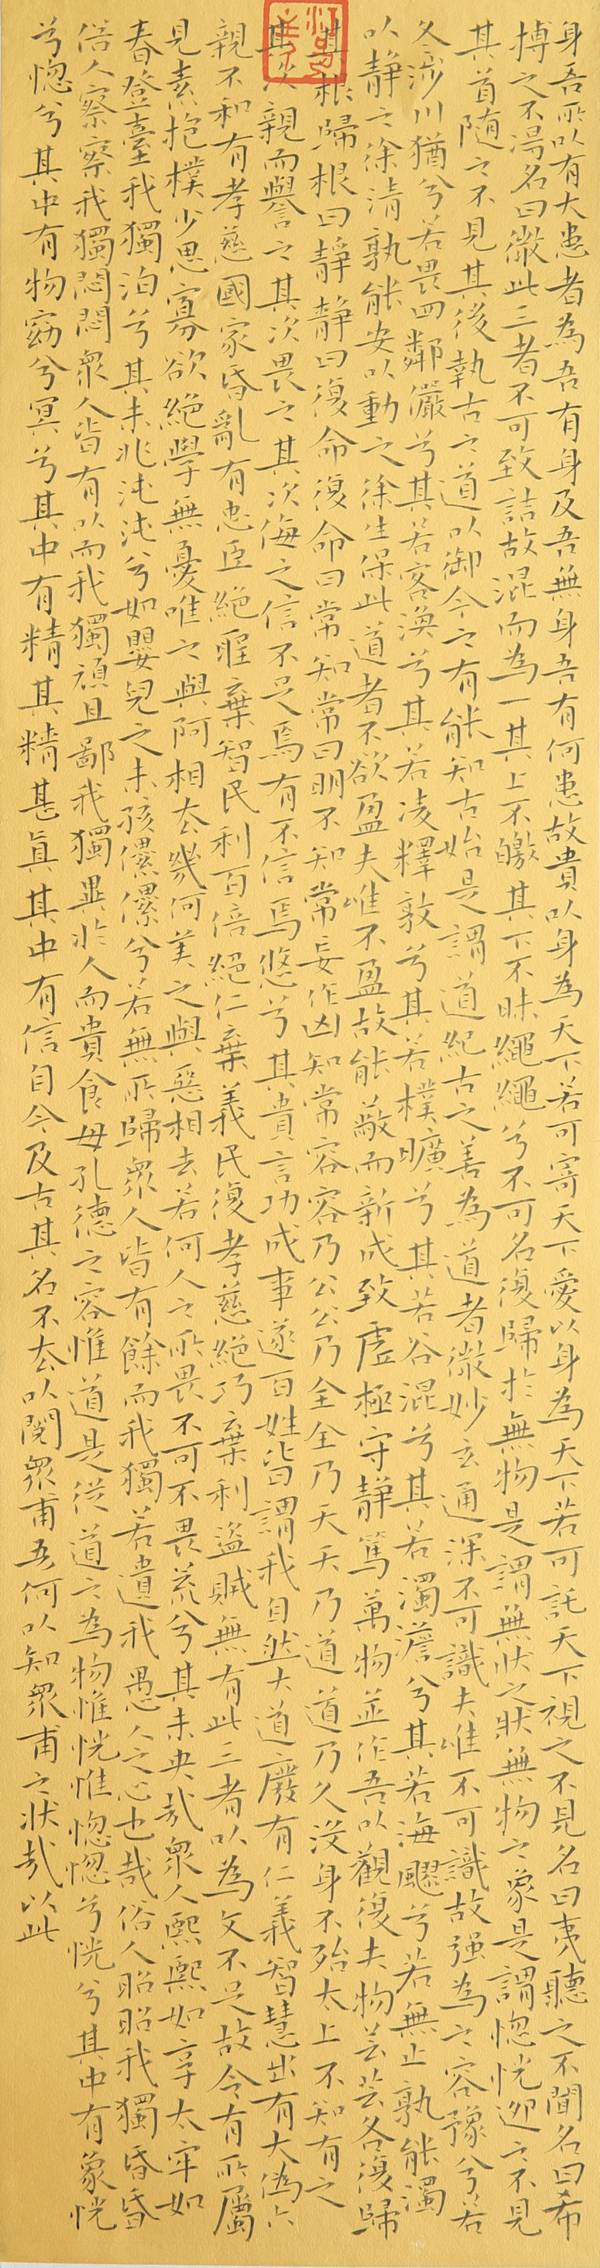 身吾所以有大患者為吾有身及吾無身吾有何患故貴以身為天下若可寄天下愛以身為天下若可託天下視之不見名曰夷聽之不聞名曰希
搏之不得名曰微此三者不可致詰故混而為一其上不皦其下不昧繩繩兮不可名復歸於無物是謂無狀之狀無物之象是謂惚恍迎之不見
其首隨之不見其後執古之道以御今之有能知古始是謂道紀古之善為道者微妙玄通深不可識夫唯不可識故强為之容豫兮若
冬涉川猶兮若畏四鄰儼兮其若客渙兮其若凌釋敦兮其若樸曠兮其若谷混兮其若濁澹兮其若海飂兮若無止孰能濁
以静之徐清孰能安以動之徐生保此道者不欲盈夫唯不盈故能蔽而新成致虛極守静篤萬物並作吾以觀復夫物芸芸各復歸
其根歸根曰静静曰復命復命曰常知常曰明不知常妄作凶知常容容乃公公乃全全乃天天乃道道乃久没身不殆太上不知有之
其次親而譽之其次畏之其次侮之信不足焉有不信焉悠兮其貴言功成事遂百姓皆謂我自然大道廢有仁義智慧出有大偽六
親不和有孝慈國家昏亂有忠臣絕聖棄智民利百倍絕仁棄義民復孝慈絕巧棄利盜賊無有此三者以為文不足故令有所屬
見素抱樸少思寡欲絕學無憂唯之與阿相去幾何美之與惡相去若何人之所畏不可不畏荒兮其未央哉衆人熙熙如享太牢如
春登臺我獨泊兮其未兆沌沌兮如嬰兒之未孩儽儽兮若無所歸衆人皆有餘而我獨若遺我愚人之心也哉俗人昭昭我獨昏昏
俗人察察我獨悶悶衆人皆有以而我獨頑且鄙我獨異於人而貴食母孔德之容惟道是從道之為物惟恍惟惚惚兮恍兮其中有象恍
兮惚兮其中有物窈兮冥兮其中有精其精甚真其中有信自今及古其名不去以閱衆甫吾何以知衆甫之狀哉以此